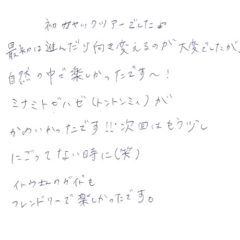 初カヤックツアーでしたよ
最初は進んだり向き変えるのが大変でしたが、
自然の中で楽しかったです〜!
ミナミトビハゼ(トントンミィ)が
かわいかったです!!次回はもう少し
にごってない時に(笑)
イトウさんのガイドも
フレンドリーで楽しかったです。